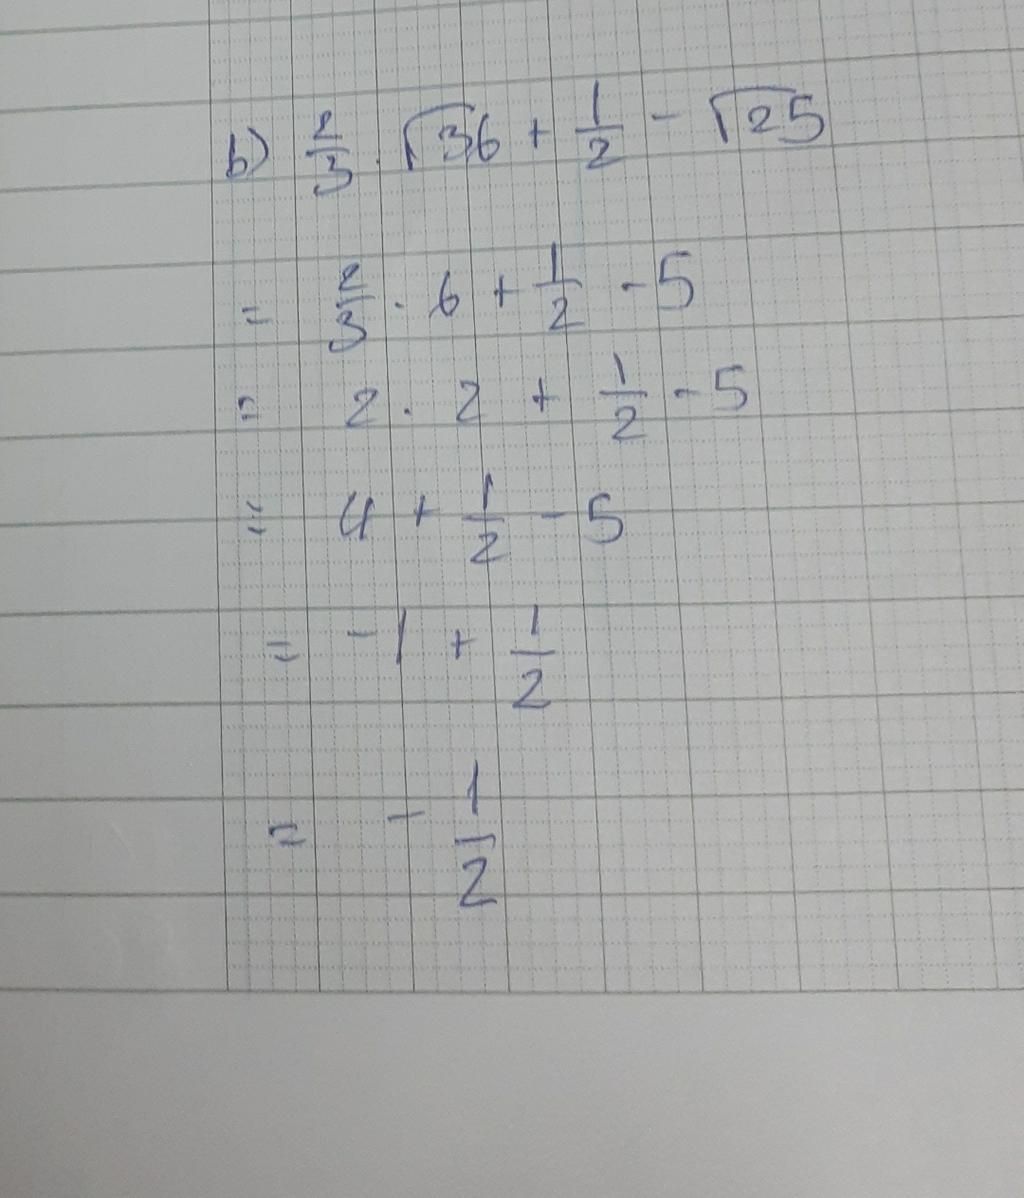 b) 2/3 . √36 + 1/2 - √25
= 2/3 . 6 + 1/2 - 5
= 2 . 2 + 1/2 - 5
= 4 + 1/2 - 5
= -1 + 1/2
= - 1/2